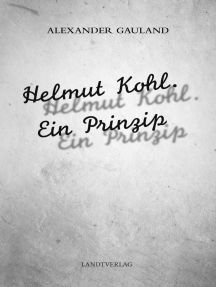 ALEXANDER GAULAND
Helmut Kohl.
Helmut Kohl.
Ein Prinzip
Ein Prinzip
LANDTVERLAG